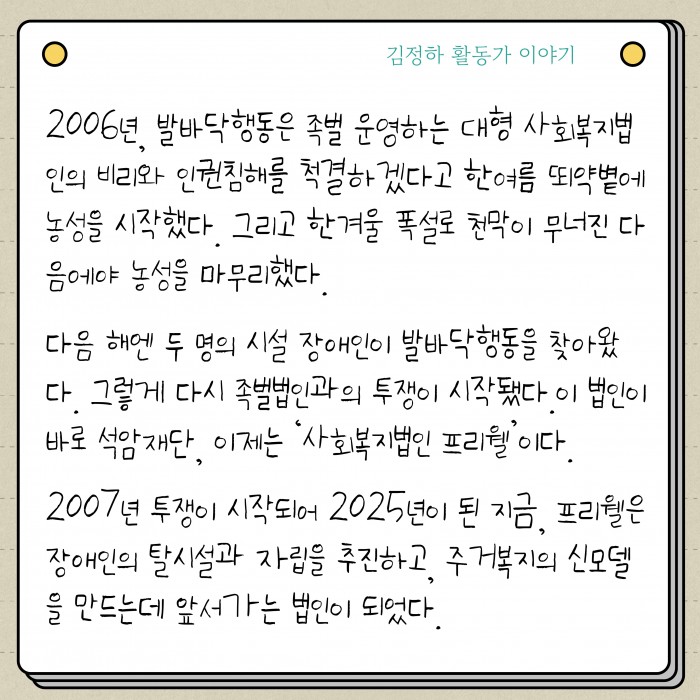 김정하 활동가 이야기
2006년, 발바닥행동은 족벌 운영하는 대형 사회복지법
인의 비리와 인권침해를 척결하겠다고 한여름 뙤약볕에
농성을 시작했다. 그리고 한겨울 폭설로 천막이 무너진 다
음에야 농성을 마무리했다.
다음 해엔 두 명의 시설 장애인이 발바닥행동을 찾아왔
다. 그렇게 다시 족벌법인과의 투쟁이 시작됐다.이 법인이
바로 석암재단, 이제는 ‘사회복지법인 프리웰’이다.
2007년 투쟁이 시작되어 2025년이 된 지금, 프리웰은
장애인의 탈시설과 자립을 추진하고, 주거복지의 신모델
을 만드는데 앞서가는 법인이 되었다.